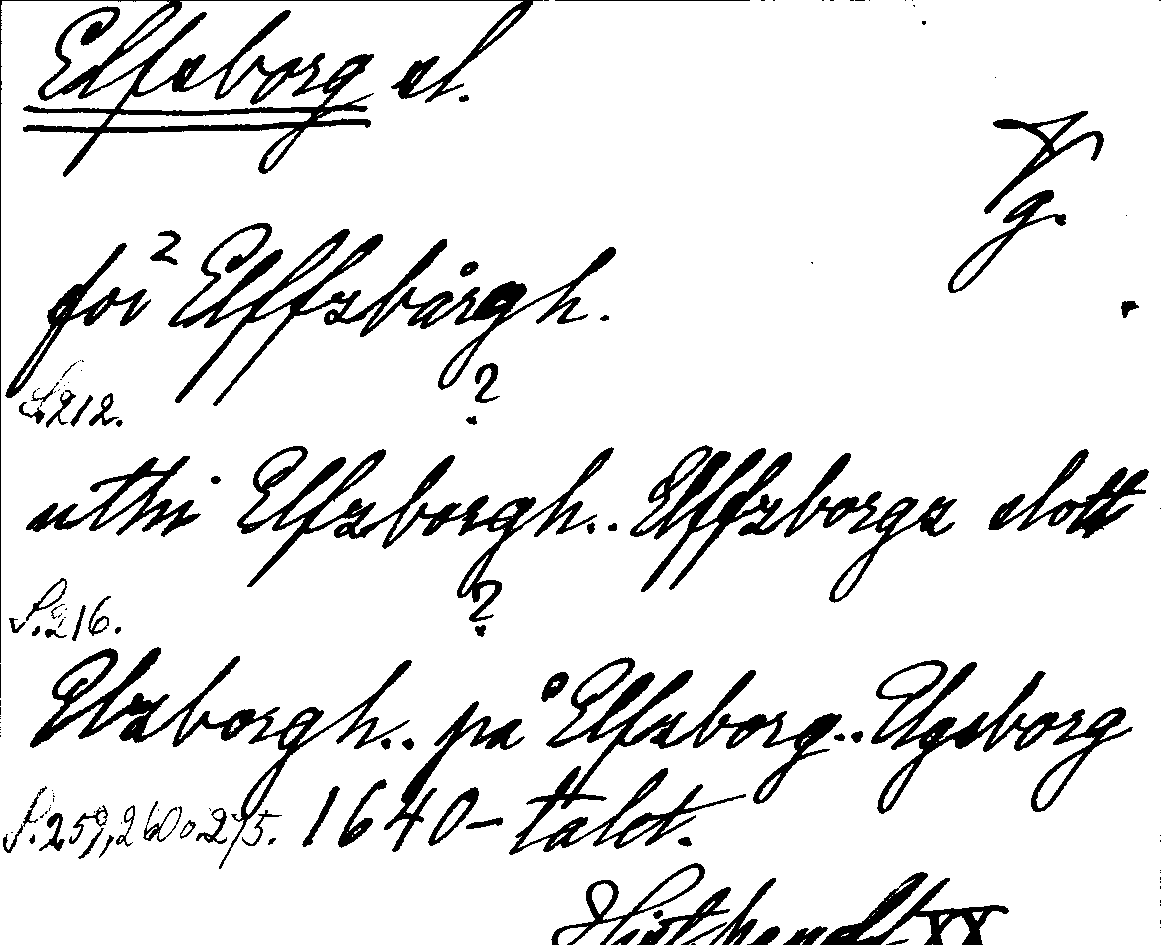 Elfsborg sl.
Vg.
för Elffzbårgh.
S. 212. ?
uthi Elfzborgh.. Elffzborgz slott
S. 216. ?
Elzborgh.. på Elfzborg.. Elgsborg
S. 259, 260 o. 275. 1640-talet.
Hist. handl. XX